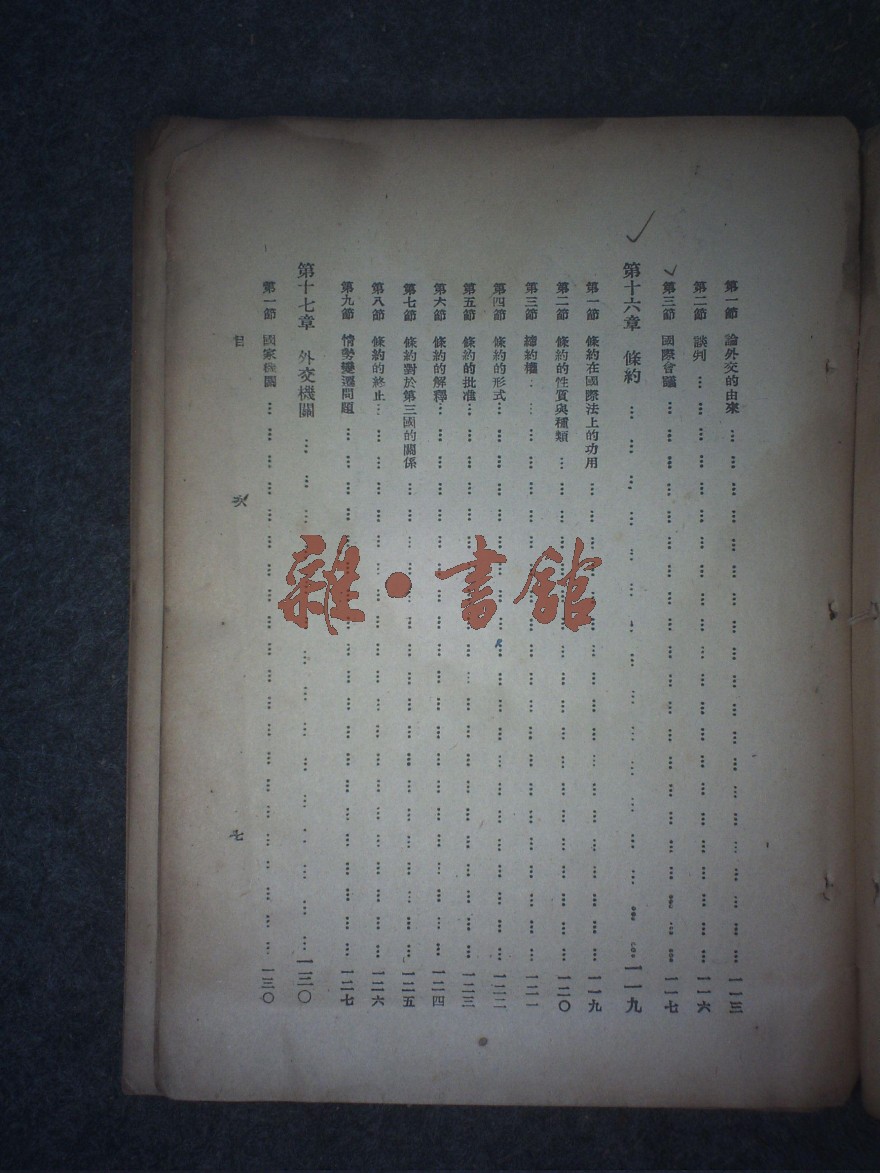 第一節 論外交的由來 一一三
第二節 談判 一一六
第三節 國際會議 一一七
第十六章 條約 一一九
第一節 條約在國際法上的功用 一一九
第二節 條約的性質與種類 一二〇
第三節 締約權 一二一
第四節 條約的形式 一二二
第五節 條約的批准 一二三
第六節 條約的解釋 一二四
第七節 條約對於第三國的關係 一二五
第八節 條約的終止 一二六
第九節 情勢變遷問題 一二七
第十七章 外交機關 一三〇
第一節 國家機關 一三〇
目次 七
雜·書館